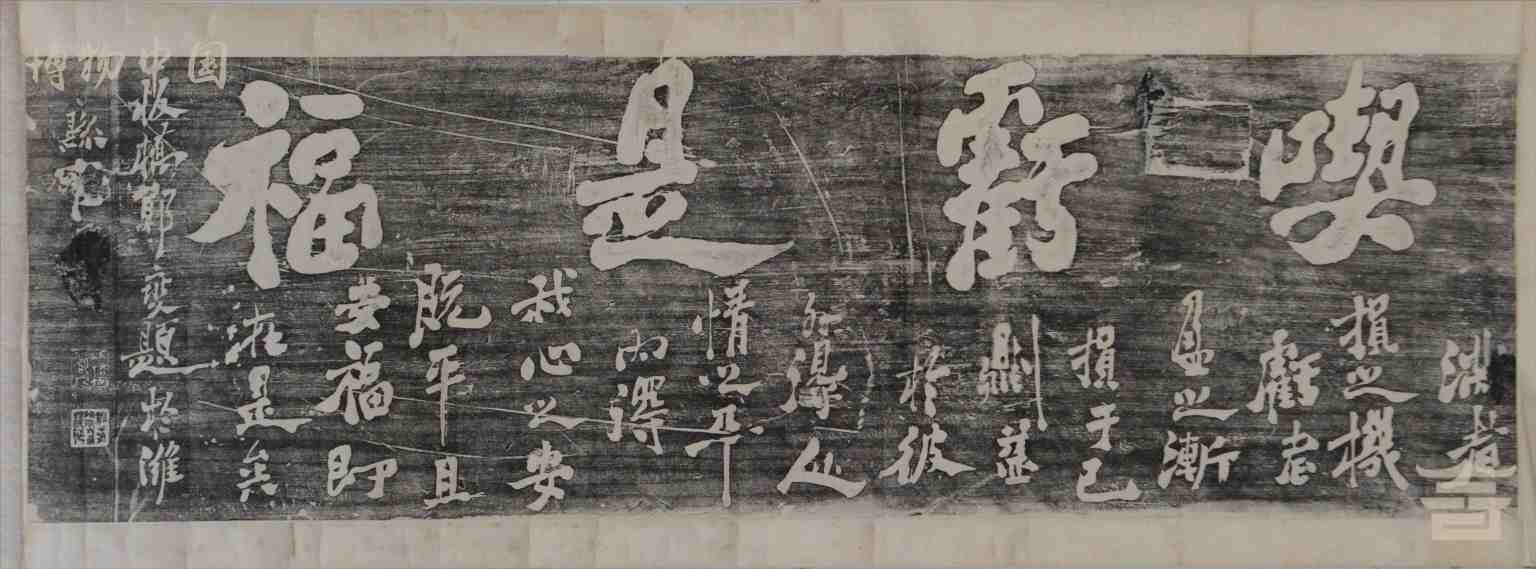 喫虧是福
滿者
損之機
虧者
盈之漸
損于己
則益
於彼
外得人
情之平
內得
我心之安
既平且
安福即
在是矣
板橋鄭燮題於濰
縣官
博物中国